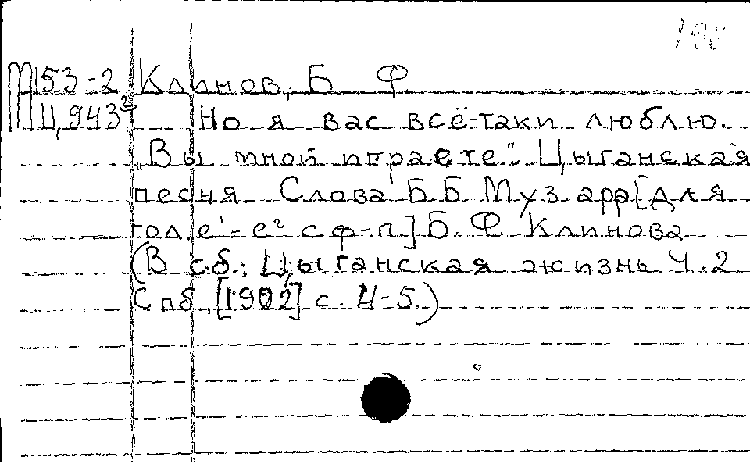 М153-2 Клинов, Б Ф
Ц943²
Но я вас всё-таки люблю.
„Вы мной играете". Цыганская
песня Слова Б Б Муз. арр [для
гол. е'-е² с ф-п] Б. Ф Клинова
(В сб.: Цыганская жизнь Ч. 2
Спб [1902] с. 4-5.)